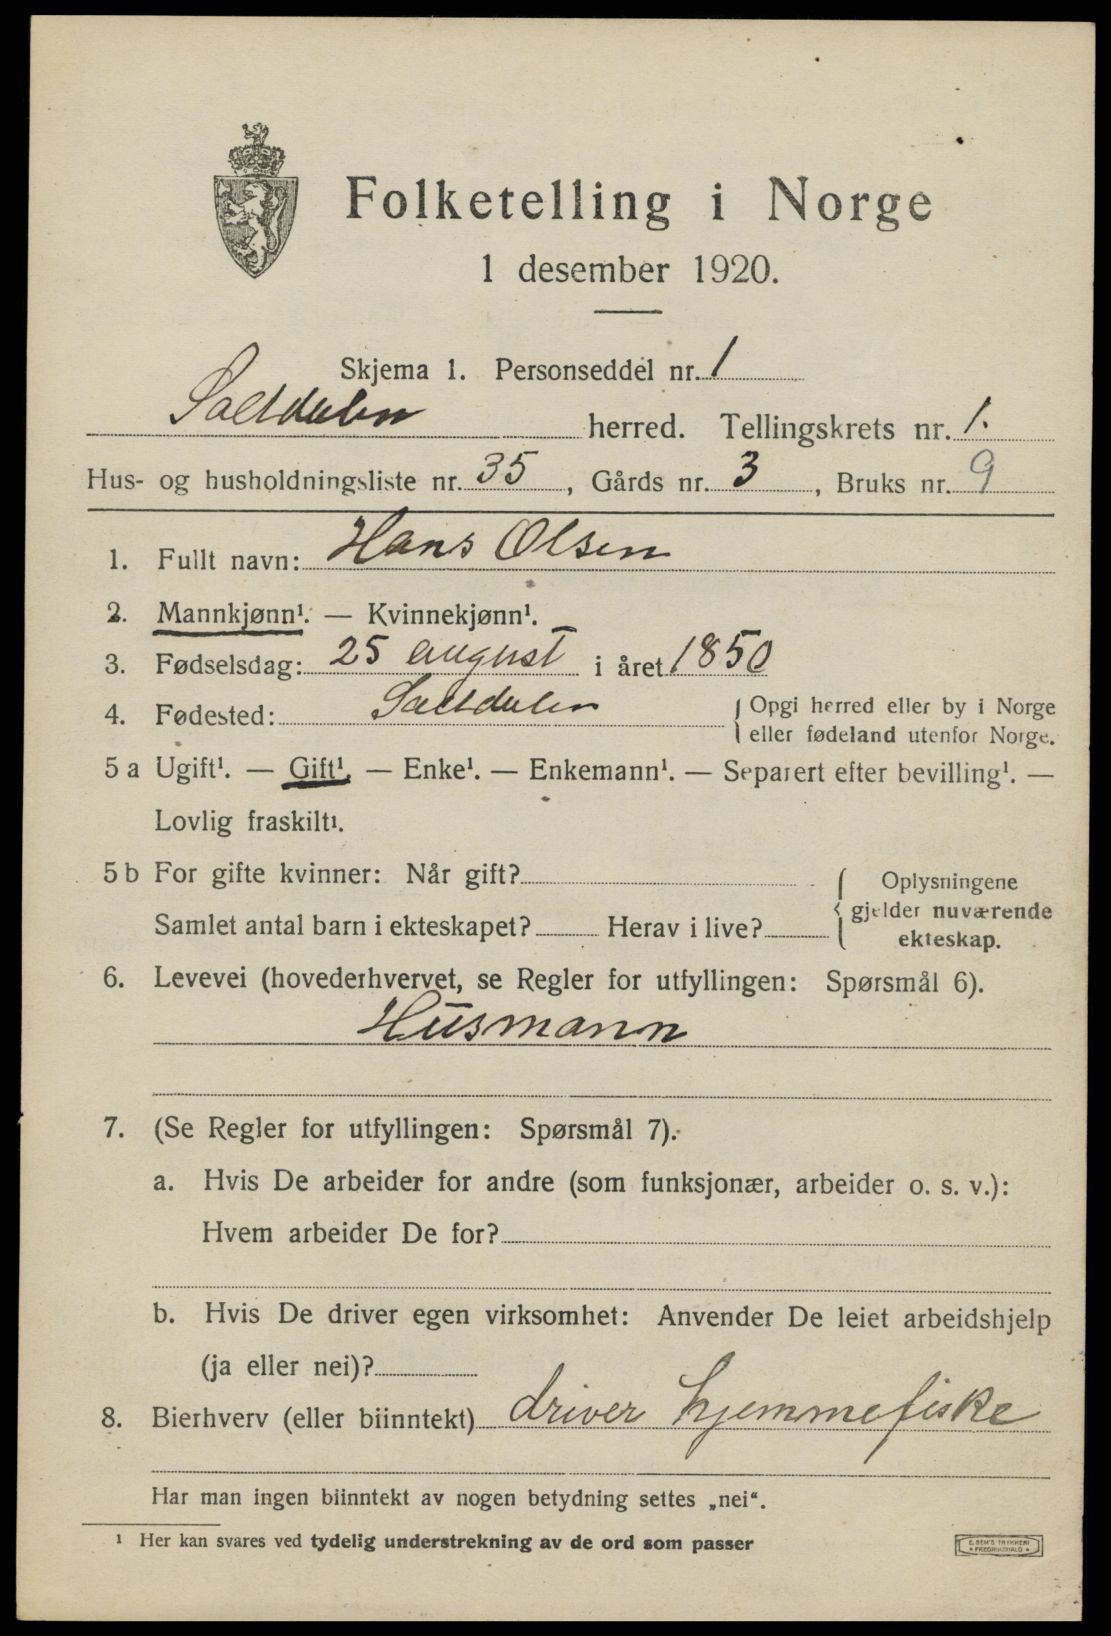 Folketelling i Norge
1 desember 1920.
Skjema 1. Personseddel nr. 1
Saltdalen herred. Tellingskrets nr. 1.
Hus- og husholdningsliste nr. 35, Gårds nr. 3, Bruks nr. 9
1. Fullt navn: Hans Olsen
2. Mannkjønn¹. — Kvinnekjønn¹.
3. Fødselsdag: 25 august i året 1850
4. Fødested: Saltdalen { Opgi herred eller by i Norge
eller fødeland utenfor Norge.
5 a Ugift¹. — Gift¹. — Enke¹. — Enkemann¹. — Separert efter bevilling¹. —
Lovlig fraskilt¹.
5 b For gifte kvinner: Når gift? { Oplysningene
gjelder nuværende
Samlet antal barn i ekteskapet? Herav i live?
ekteskap.
6. Levevei (hovederhvervet, se Regler for utfyllingen: Spørsmål 6).
Husmann
7. (Se Regler for utfyllingen: Spørsmål 7).
a. Hvis De arbeider for andre (som funksjonær, arbeider o. s. v.):
Hvem arbeider De for?
b. Hvis De driver egen virksomhet: Anvender De leiet arbeidshjelp
(ja eller nei)?
8. Bierhverv (eller biinntekt) driver hjemmefiske
Har man ingen biinntekt av nogen betydning settes „nei“.
¹ Her kan svares ved tydelig understrekning av de ord som passer
E. SEM'S TRYKKERI
FREDRIKSHALD